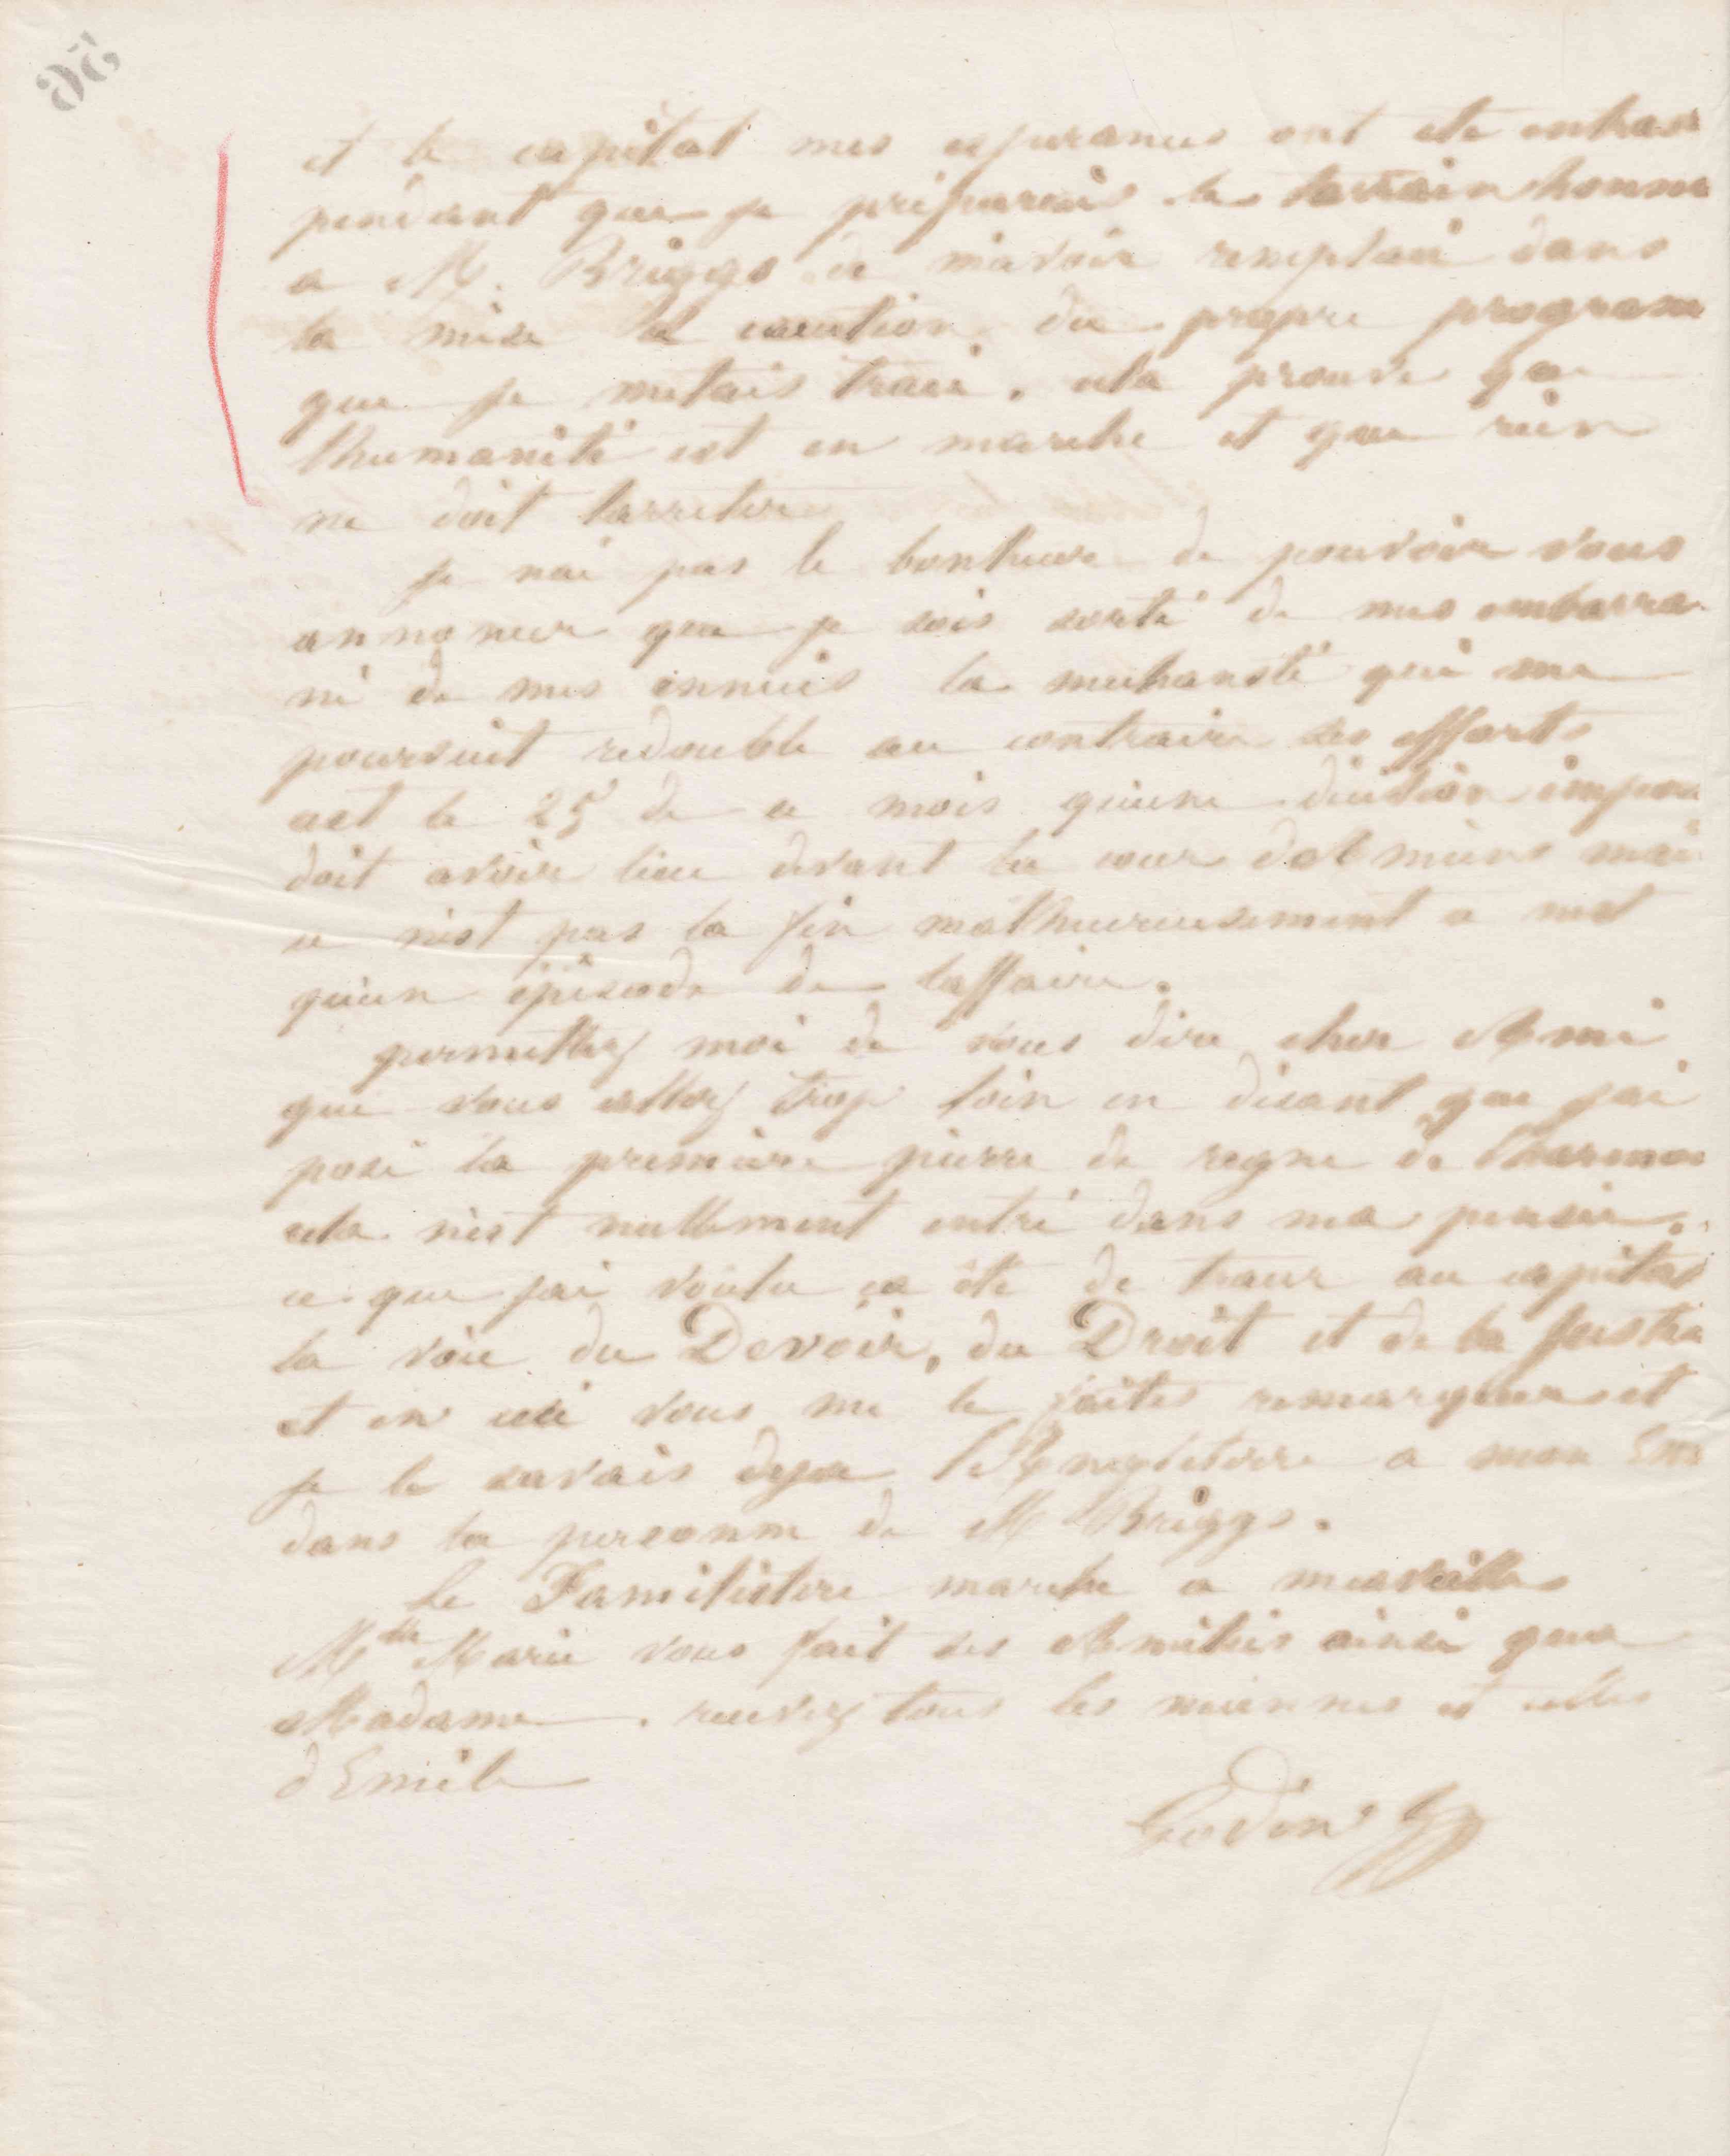 56
et le capital mes esperances ont ete entrav
pendant que je préparais le terrain honneur
a M. Briggs de m'avoir remplacé dans
la mise a execution du propre program
que je metais tracé. cela prouve que
lhumanité est en marche et que rien
ne doit larreter
je nai pas le bonheur de pouvoir vous
annoncer que je sois sorti de mes embarra
ni de mes ennuis la mechanseté qui me
poursuit redouble au contraire ses efforts
cest le 25 de ce mois quune décision impor
doit avoir lieu devant la cour dAmiens mai
ce nest pas la fin malheureusement ce nest
quun épisode de laffaire.
permettez moi de vous dire cher Ami
que vous allez trop loin en disant que jai
posé la premiere pierre du regne de lharmo
cela nest nullement entré dans ma pensée.
ce que jai voulu ca été de tracer au capital
la voie du Devoir, du Droit et de la Justice
et en ceci vous me le faites remarquer et
je le savais deja lAngleterre a mon Emu
dans la personne de M Briggs.
Le Familistere marche a merveille
Mlle Marie vous fait ses Amitiés ainsi qua
Madame. recevez tous les miennes et celles
d Emile
Godin